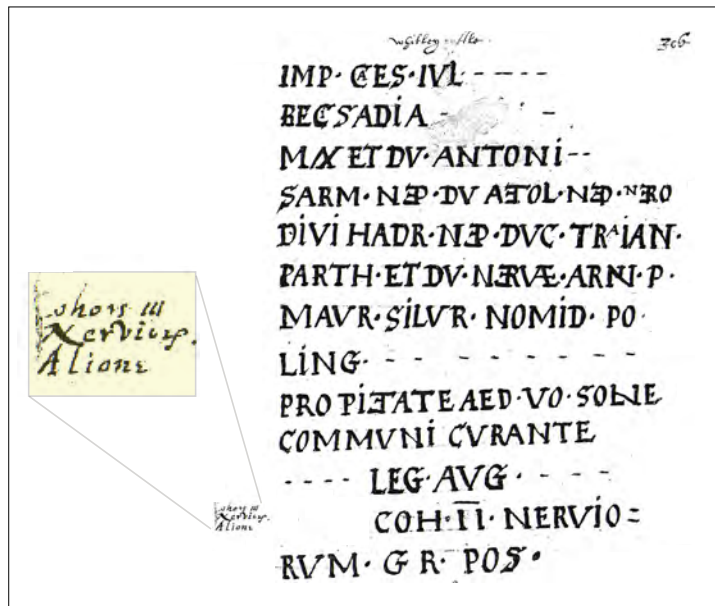 whitbey castle. 306
IMP· CAES·IVL - - - - -
BECSADIA - - -
MAX ET DV· ANTONI--
SARM· NEP· DV ATOL·NEP· NERO
DIVI HADR·NEP· DVC· TRAIAN·
PARTH·ET DV· NERVÆ·ARNI·P·
MAVR·SILVR· NOMID· PO
LING· - - - - - - -
PRO PIETATE AED·VO·SONE
COMMVNI CVRANTE
- - - - LEG·AVG· - - - -
COH·III·NERVIO=
RVM· G R· POS·
Cohors III
Nerviorum.
Alione
Cohors III
Nerviorum.
Alione